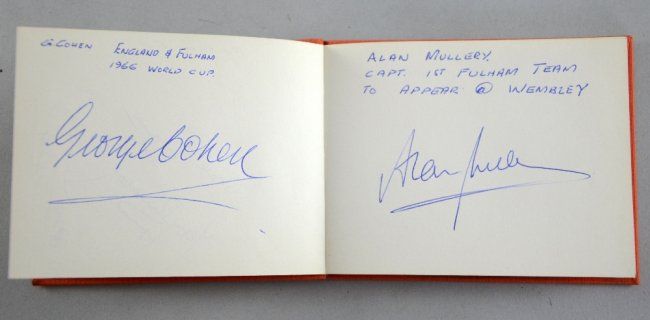 G. COHEN ENGLAND & FULHAM
1966 WORLD CUP.
George Cohen
ALAN MULLERY.
CAPT. 1ST FULHAM TEAM
TO APPEAR @ WEMBLEY
Alan Mullery